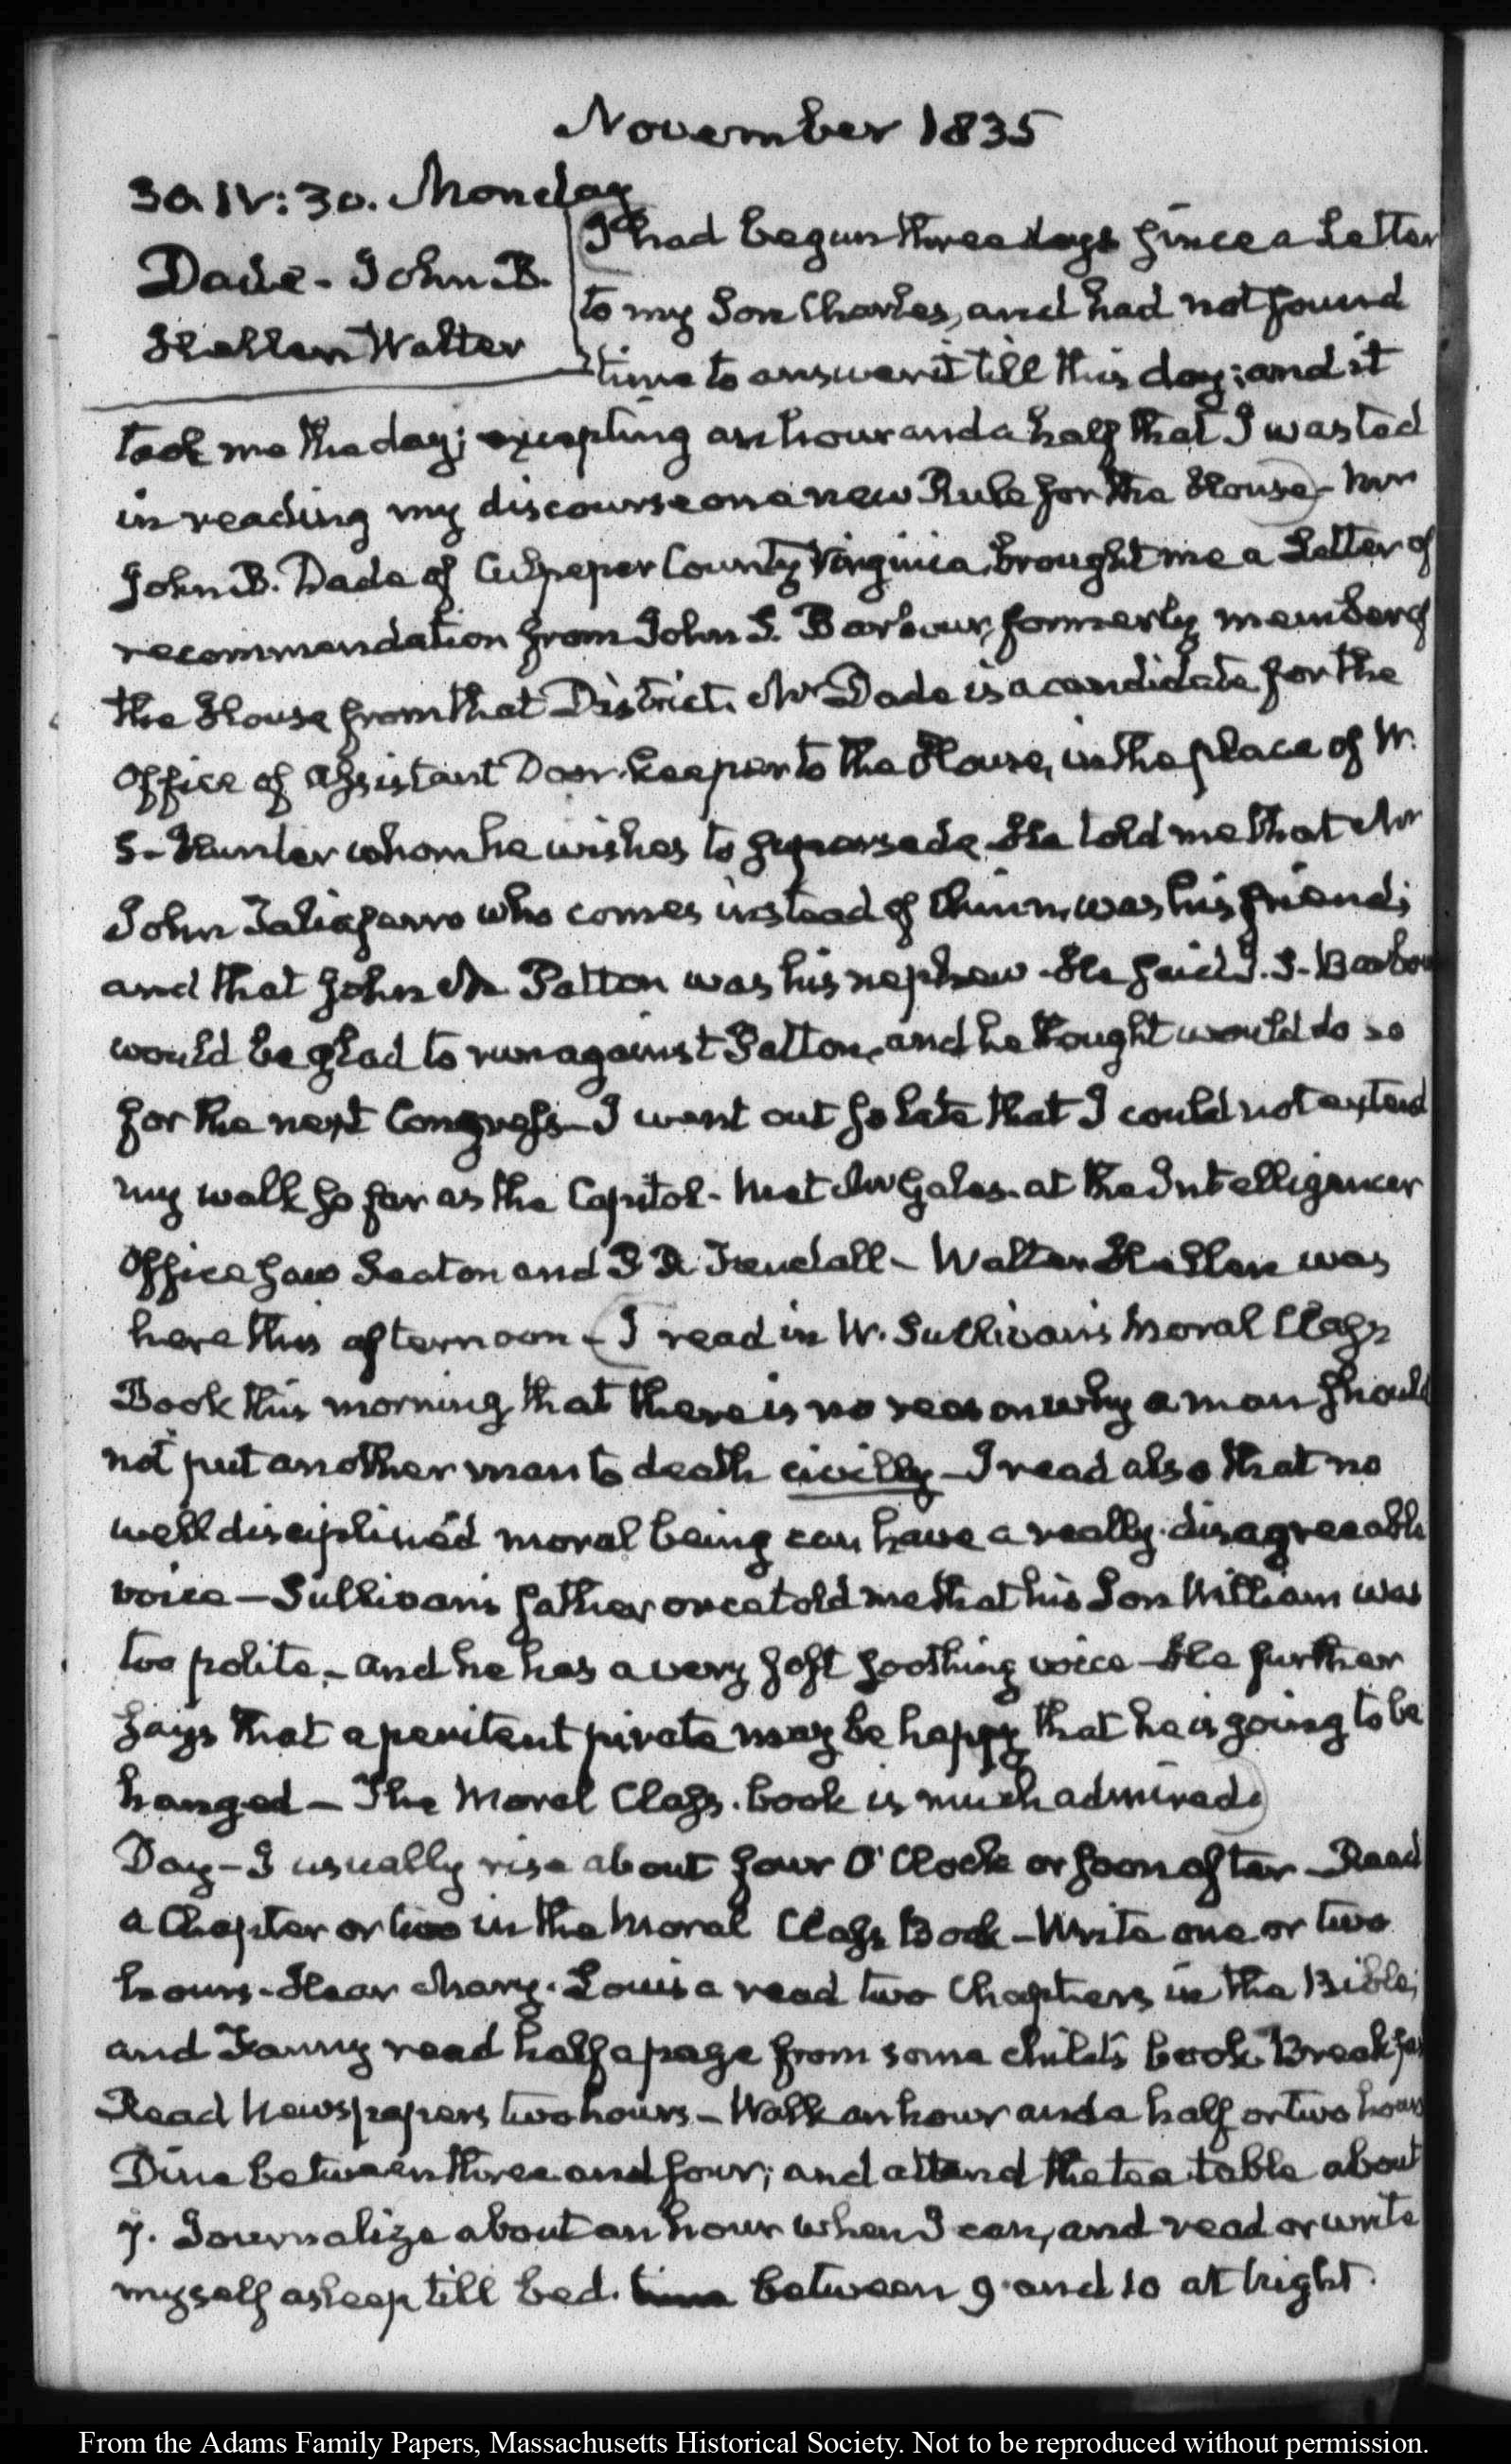 November 1835
30. IV:30. Monday
Dade - John B.
Hellen Walter
I had begun three days since a Letter
to my Son Charles, and had not found
time to answer it till this day; and it
took me the day; excepting an hour and a half that I wasted
in reading my discourse on a new Rule for the House - Mr
John B. Dade of Culpeper County Virginia, brought me a Letter of
recommendation from John S. Barbour, formerly member of
the House from that District. Mr Dade is a candidate for the
Office of Assistant Door-keeper to the House, in the place of W.
S- Hunter whom he wishes to supersede. He told me that Mr
John Taliaferro who comes instead of Chinn, was his friend;
and that John M. Patton was his nephew - He said J. S- Barbour
would be glad to run against Patton, and he thought would do so
for the next Congress - I went out so late that I could not extend
my walk so far as the Capitol - Met Mr Gales - at the Intelligencer
Office saw Seaton and Fendall - Walter Hellen was
here this afternoon - (I read in W. Sullivan's Moral Class
Book this morning that there is no reason why a man should
not put another man to death civilly - I read also that no
well disciplined moral being can have a really disagreeable
voice - Sullivan's father once told me that his Son William was
too polite - and he has a very soft soothing voice - He further
says that a penitent pirate may be happy that he is going to be
hanged - The Moral Class-book is much admired)
Day - I usually rise about four O'Clock or soon after - Read
a Chapter or two in the Moral Class Book - Write one or two
hours - Hear Mary-Louisa read two Chapters in the Bible;
and Fanny read half a page from some child's book. Breakfast
Read Newspapers two hours - Walk an hour and a half or two hours
Dine between three and four; and attend the tea table about
7. Journalize about an hour when I can, and read or write
myself asleep till bed. time between 9 and 10 at Night.
From the Adams Family Papers, Massachusetts Historical Society. Not to be reproduced without permission.